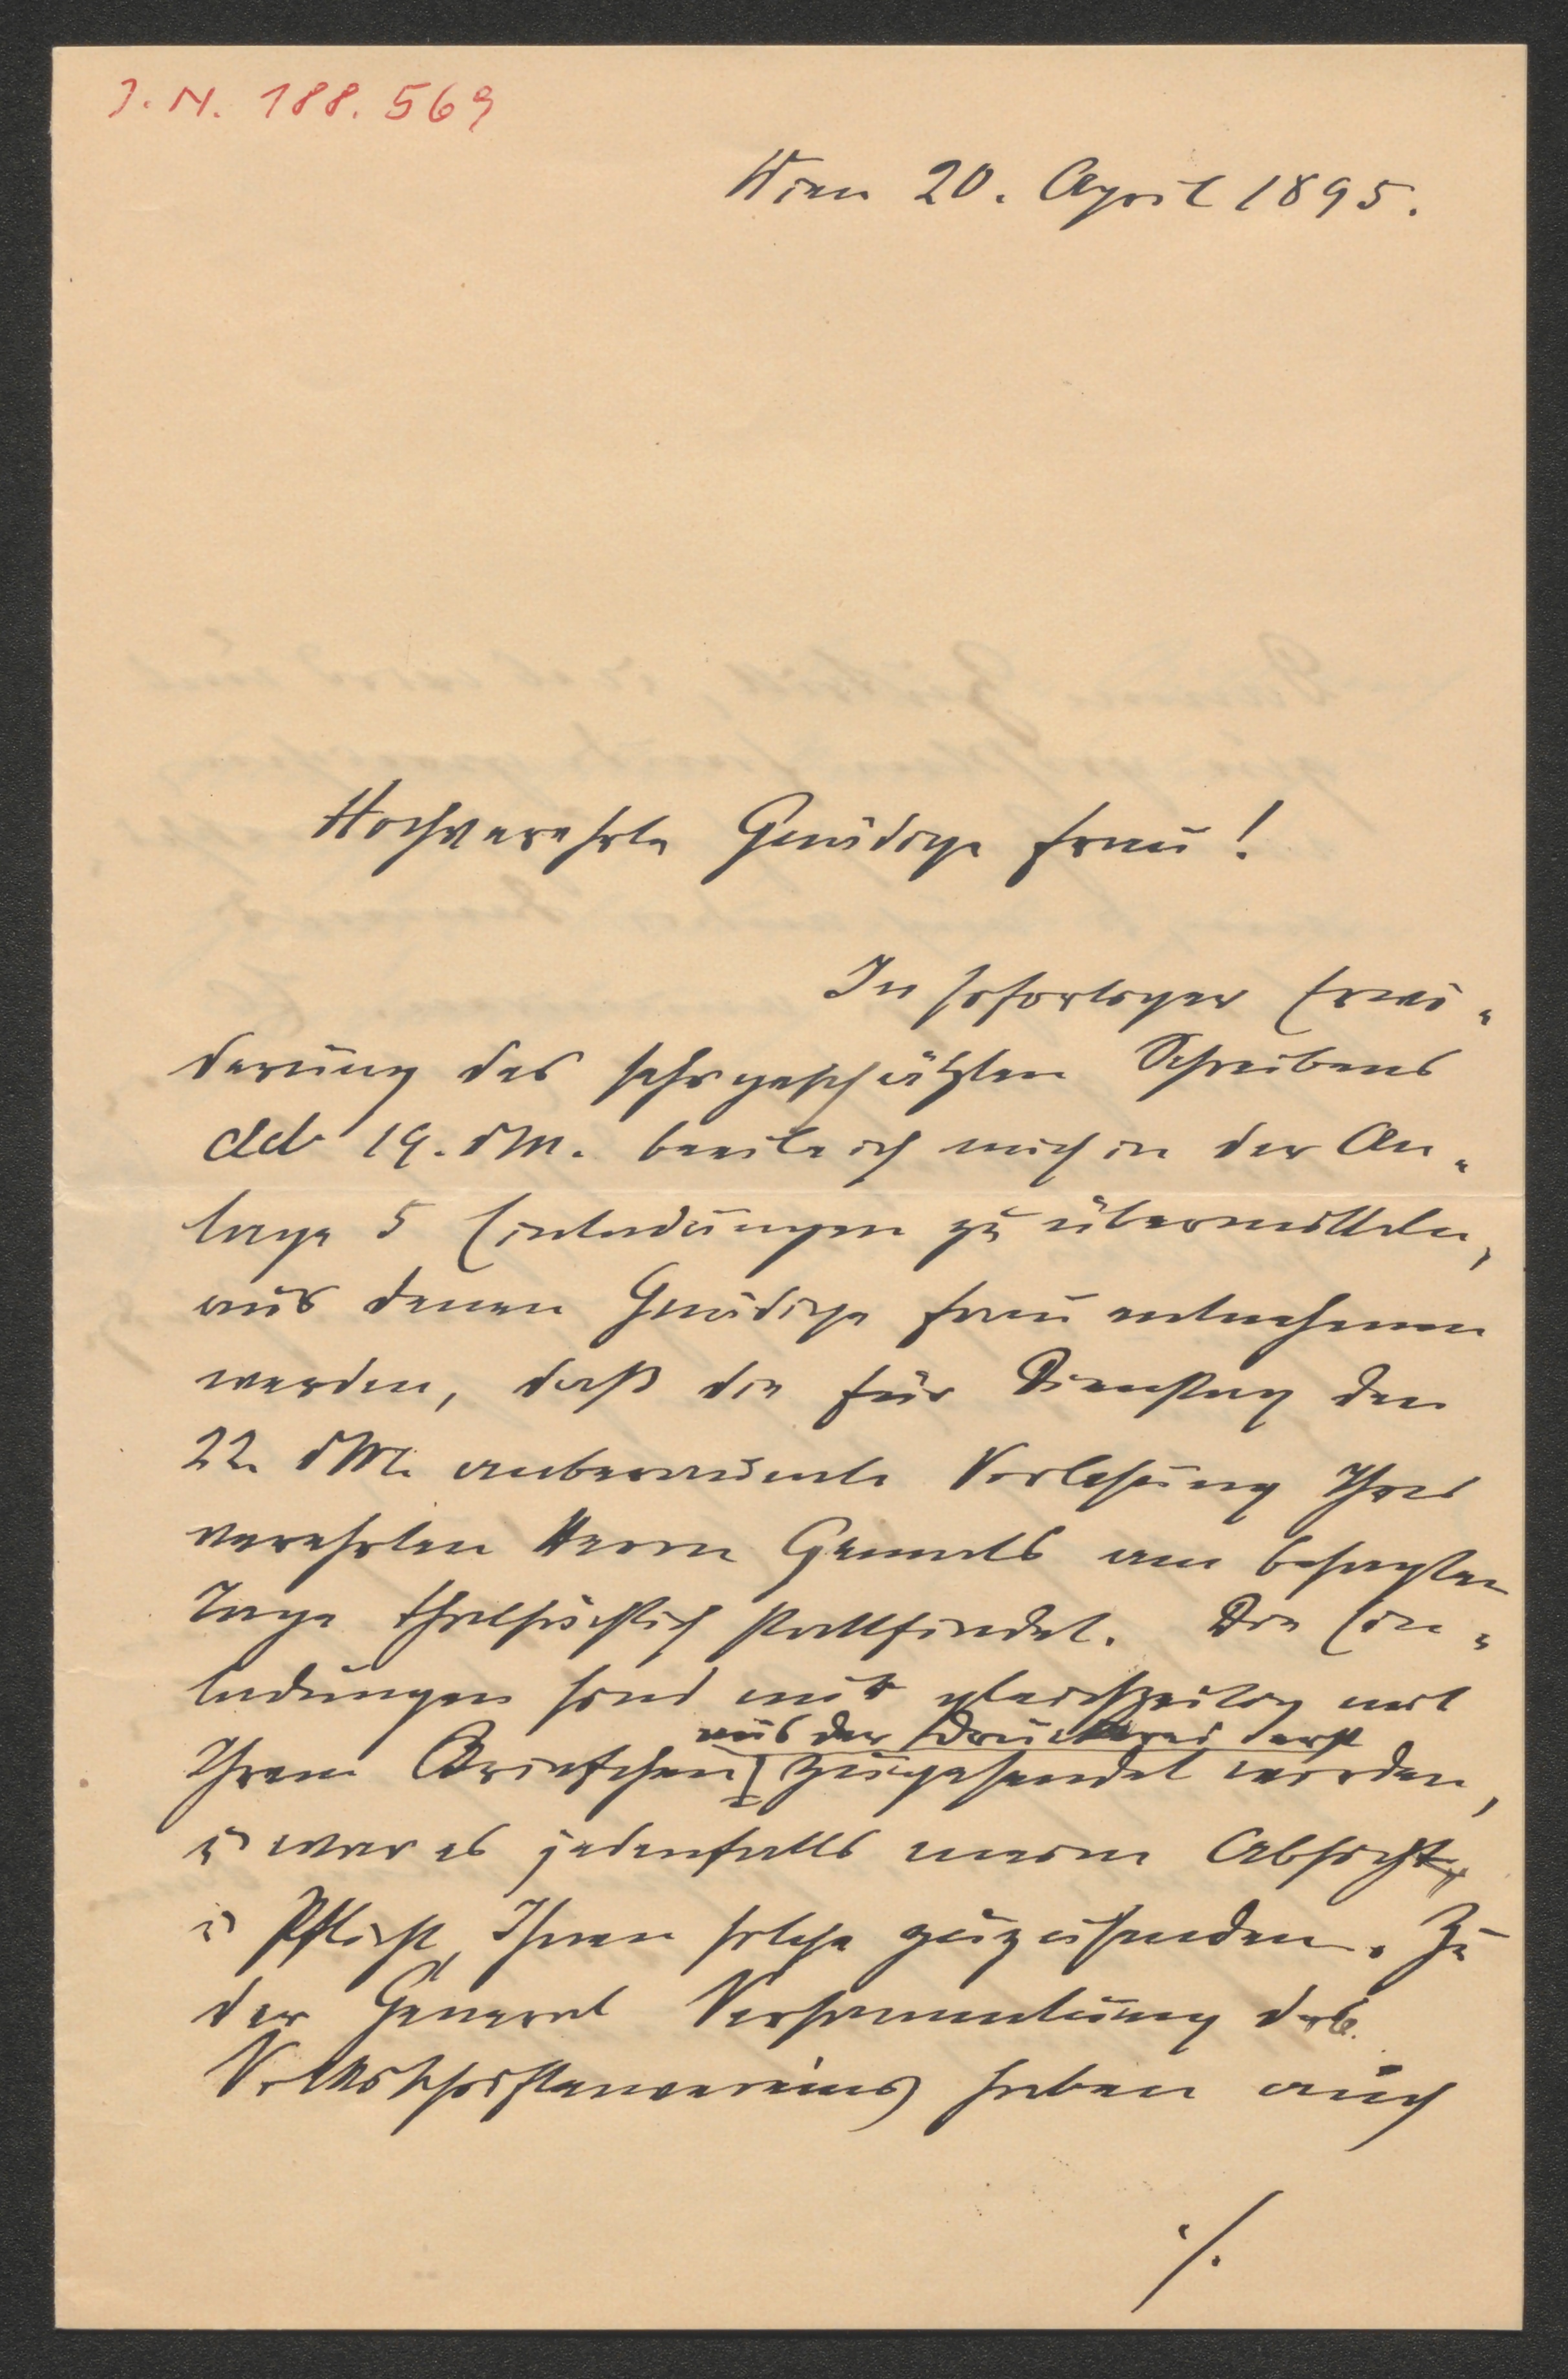 J. N. 188.569
Wien 20. April 1895.
Hochverehrte Gnädige Frau!
In sofortiger Erwi-
derung des sehrgeschätzten Schreibens
ddo 19. d M. beeile ich mich in der An-
lage 5 Einladungen zu übermitteln,
aus denen Gnädige Frau entnehmen
werden, daß die für Dienstag den
22. d M. anberaumte Vorlesung Ihres
verehrten Herrn Gemals am besagten
Tage thatsächlich stattfindet. Die Ein-
ladungen sind mir gleichzeitig mit
aus der Druckerei erst
Ihrem Briefchen zugesendet worden,
u war es jedenfalls meine Absicht
u Pflicht, Ihnen solche zuzusenden. Zu
der General Versammlung des
Volksschriftenvereins haben auch
./.